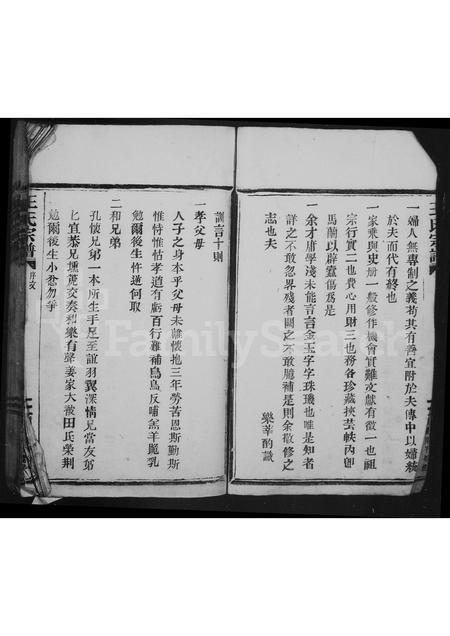 一婦人無專制之義苟其有善宜附於夫傳中以婦統
於夫而代有終也
一家乘與史册一般修作機會實難文獻有徵一也祖
宗行實二也費心用財三也務各珍藏挾芸帙內卽
馬蘭以辟蠹傷爲是
一余才庸學淺未能言言金玉字字珠璣也唯是知者
詳之不敢忽畧殘者闕之不敢臆補是則余敬修之
志也夫
樂莘酌識
王氏宗譜
訓言十則
一孝父母
人子之身本乎父母未離懷抱三年勞苦恩斯勤斯
惟恃惟怙孝道有虧百行難補烏鳥反哺羔羊跪乳
勉爾後生忤逆何取
二和兄弟
孔懷兄弟一本所生手足至誼羽翼深情兄當友弟
弟宜恭兄壎箎交奏和樂有聲姜家大被田氏榮荆
勉爾後生小忿勿爭
王氏宗譜
序文
FamilySearch